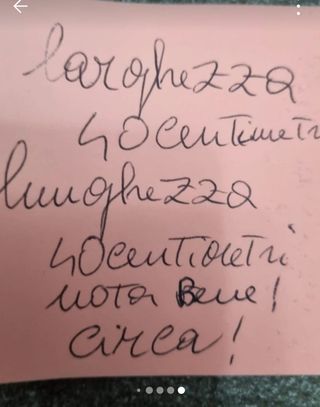 larghezza
40 centimetri
lunghezza
40 centimetri
nota Bene!
circa!